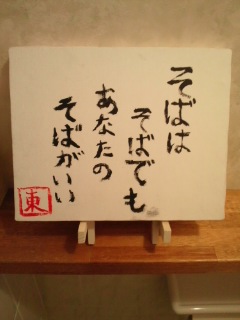 そばは
そばでも
あなたの
そばがいい
東